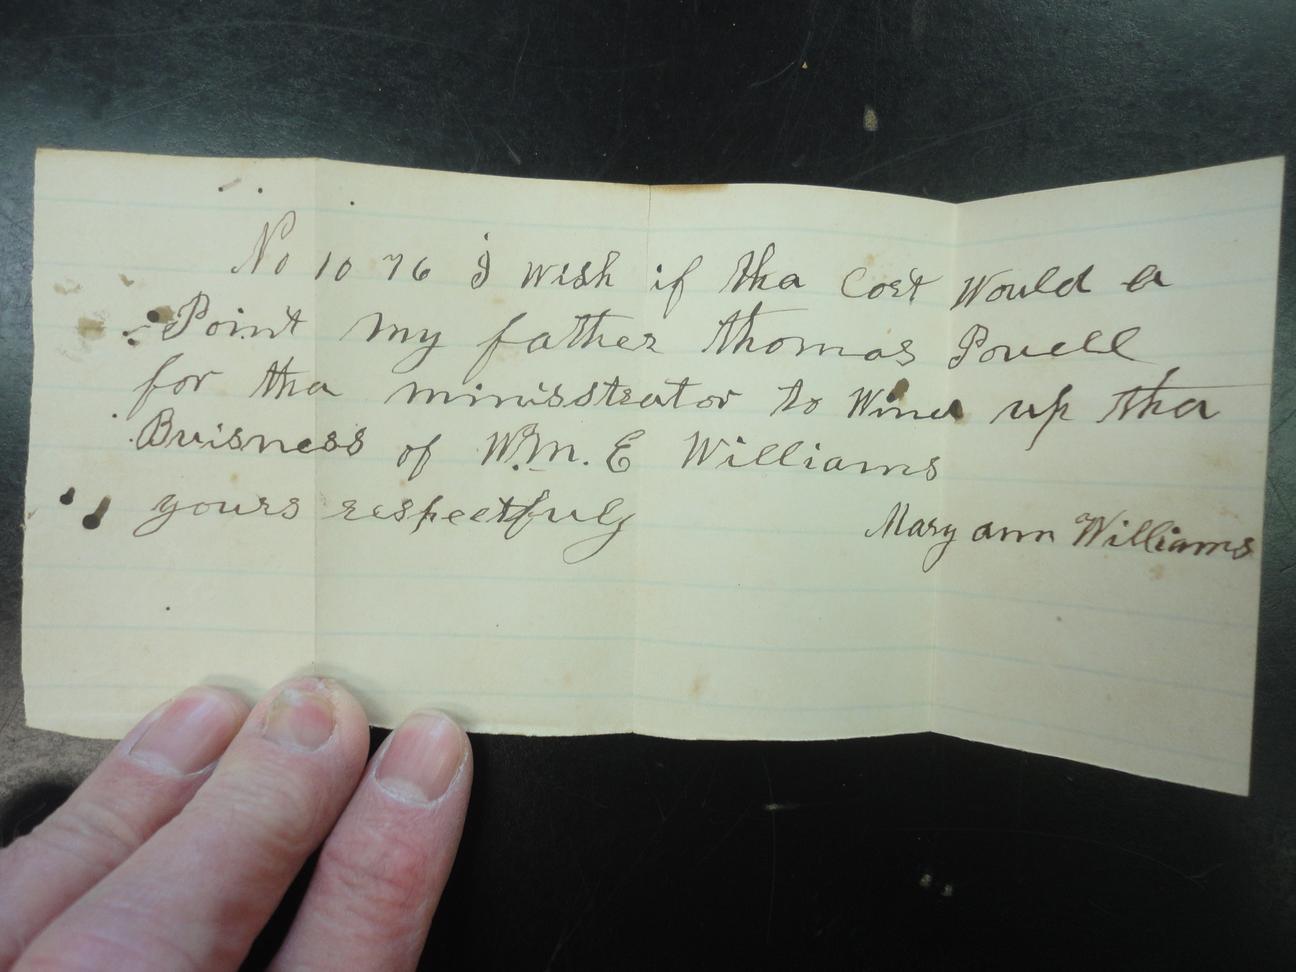 No 10 76 I wish if tha Cort Would a
Point my father thomas Powell
for tha ministrator to Wind up tha
Buisness of Wm. E Williams
yours respectfuly Mary ann Williams